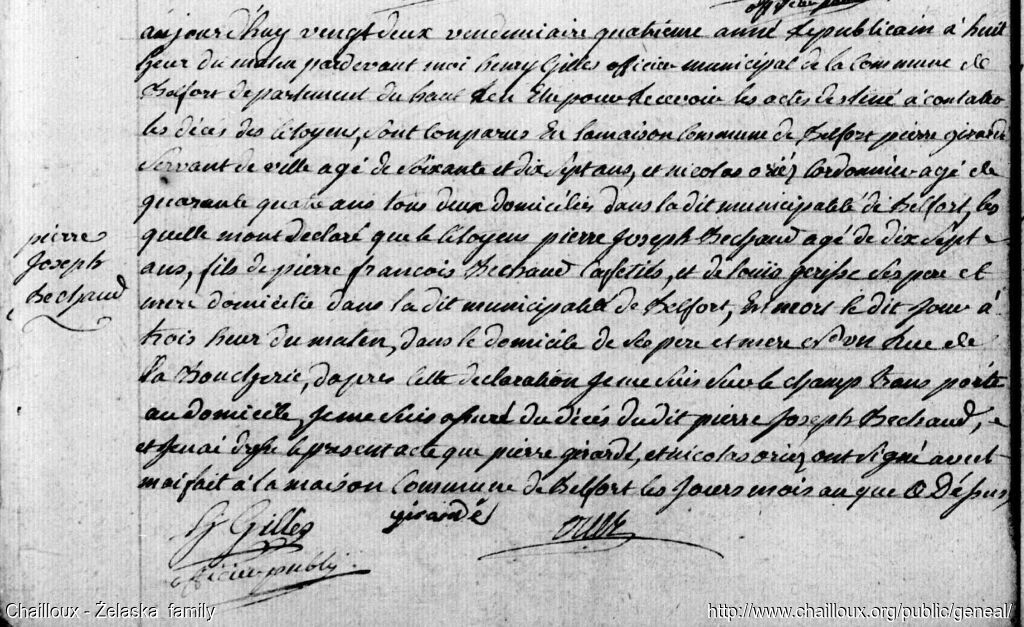 officier public
aujourd'huy vingt deux vendemiaire quatrieme anné Republicain à huit
heur du matin pardevant moi henry Gilles officier municipal de la Commune de
Belfort departement du haut Rein Elu pour Recevoir les actes destiné à Constater
les décés des Citoyens, sont Comparus En la maison Commune de Belfort pierre girardé
servant de ville agé de soixante et dix sept ans, et nicolas oriéz Cordonnier agé de
quarante quatre ans tous deux domiciliés dans la dit municipalité de Belfort, les
quelle mont declaré que le Citoyens pierre Joseph Bechaud agé de dix sept
ans, fils de pierre francois Bechaud Cafetils, et de louiis ses pere et
mere domicilié dans la dit municipalité de Belfort, Est mort le dit Jour à
trois heur du maten, dans le domicile de ses pere et mere Rue de
la Boucherie, dapres cette declaration Je me suis sur le champ trans porté
au domicile, Je me suis assuré du décés du dit pierre Joseph Bechaud,
et Jenai dressé le present acte que pierre girardé, et nicolas oriez ont signé avec
moi fait à la maison Commune de Belfort les Jours mois an que Déssus,
pierre
Joseph
Bechaud
H Gilles
girardé
officier publiq
Chailloux - Želaska family
http://www.chailloux.org/public/geneal/